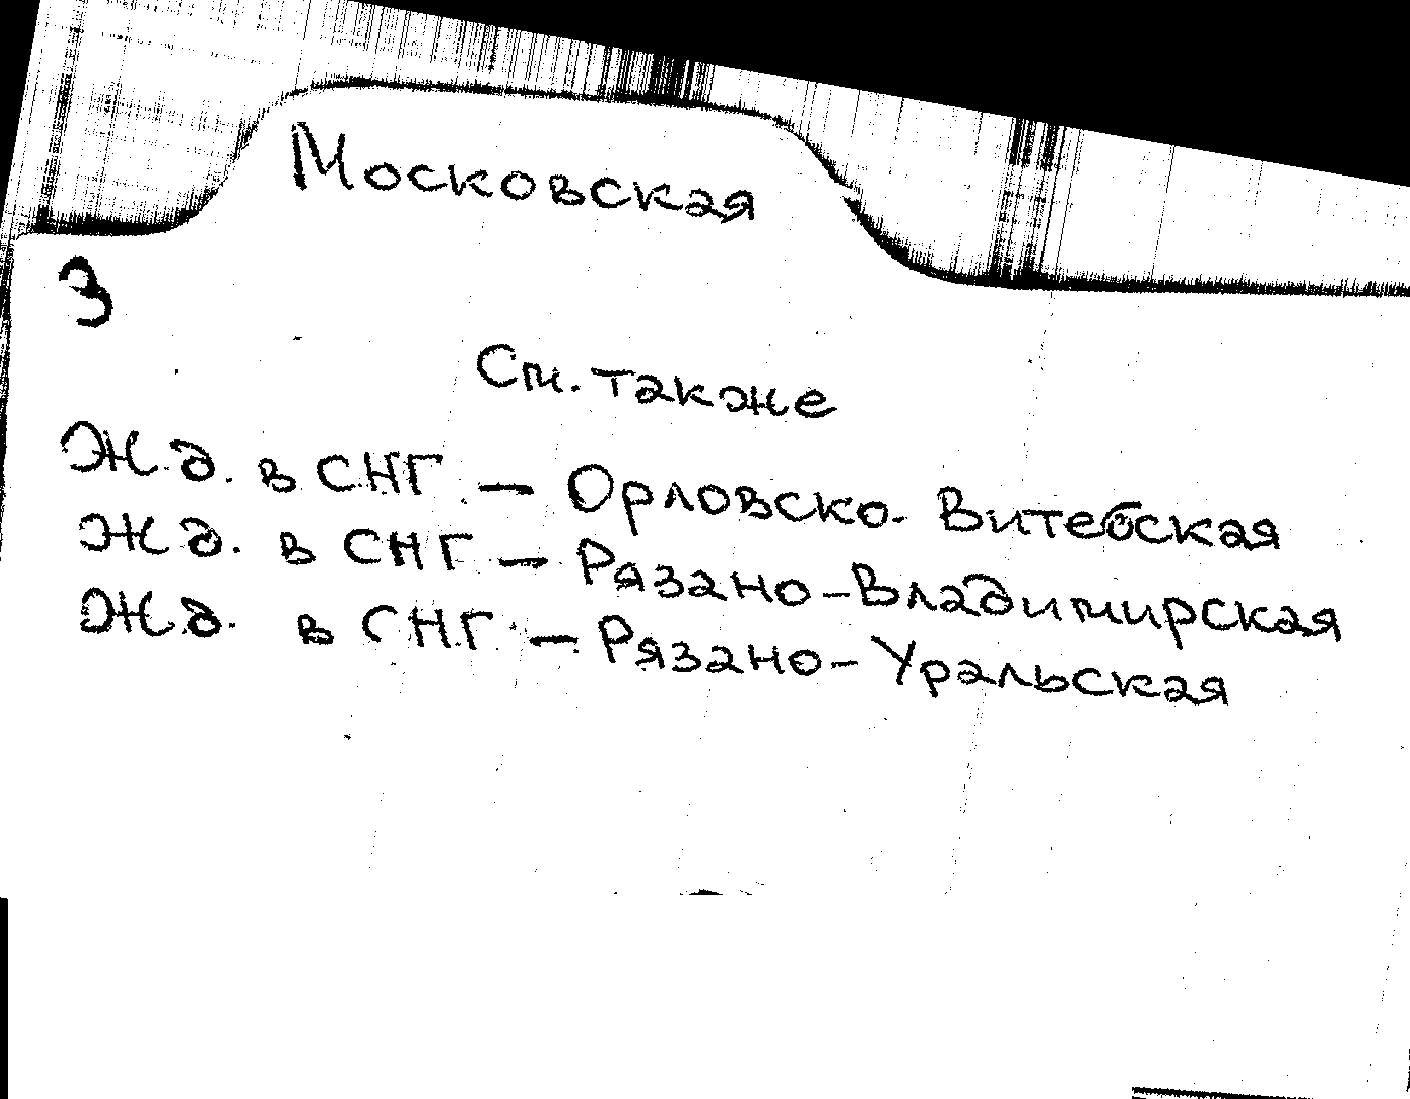 Московская
3
См. также
Ж.д. в СНГ — Орловско-Витебская
Ж.д. в СНГ — Рязано-Владимирская
Ж.д. в СНГ — Рязано-Уральская